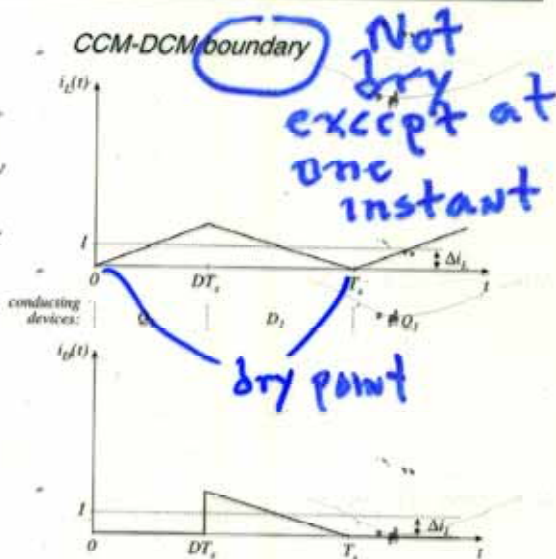 CCM-DCM boundary
Not
dry
except at
one
instant
i_L(t)
I
Δi_L
0
DT_s
T_s
t
conducting
devices:
Q
D_1
Q_1
dry point
i_D(t)
I
Δi_L
0
DT_s
T_s
t